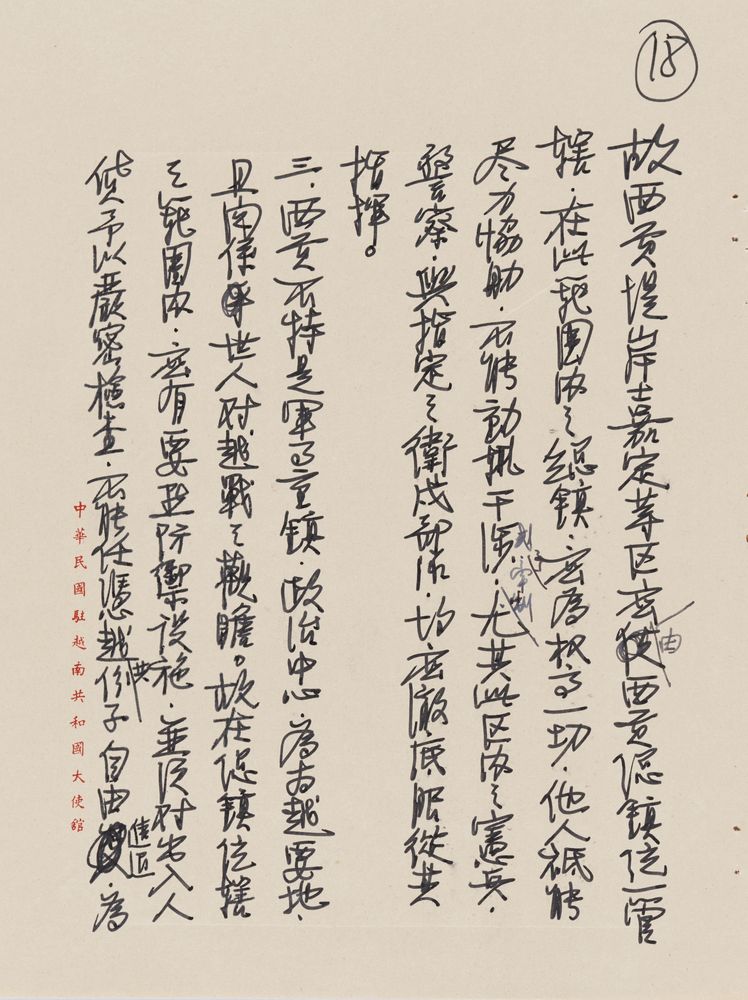 18
故西貢堤岸嘉定等区应由西貢總鎮統一管
轄.在此范围内之總鎮.应為权高一切.他人祇能
尽力協助.不能動輒干涉.或予牽制尤其此区内之憲兵.
警察.與指定之衛戍部队.均应澈底服從其
指揮。
三.西貢不特是軍事重鎮.政治中心.為古越要地.
且関係世人对越戰之觀瞻。故在總鎮統轄
之範圍内.应有要点防禦設施.並須对出入人
貨予以嚴密檢查.不能任憑越共份子自由進区.為
中華民國駐越南共和國大使館